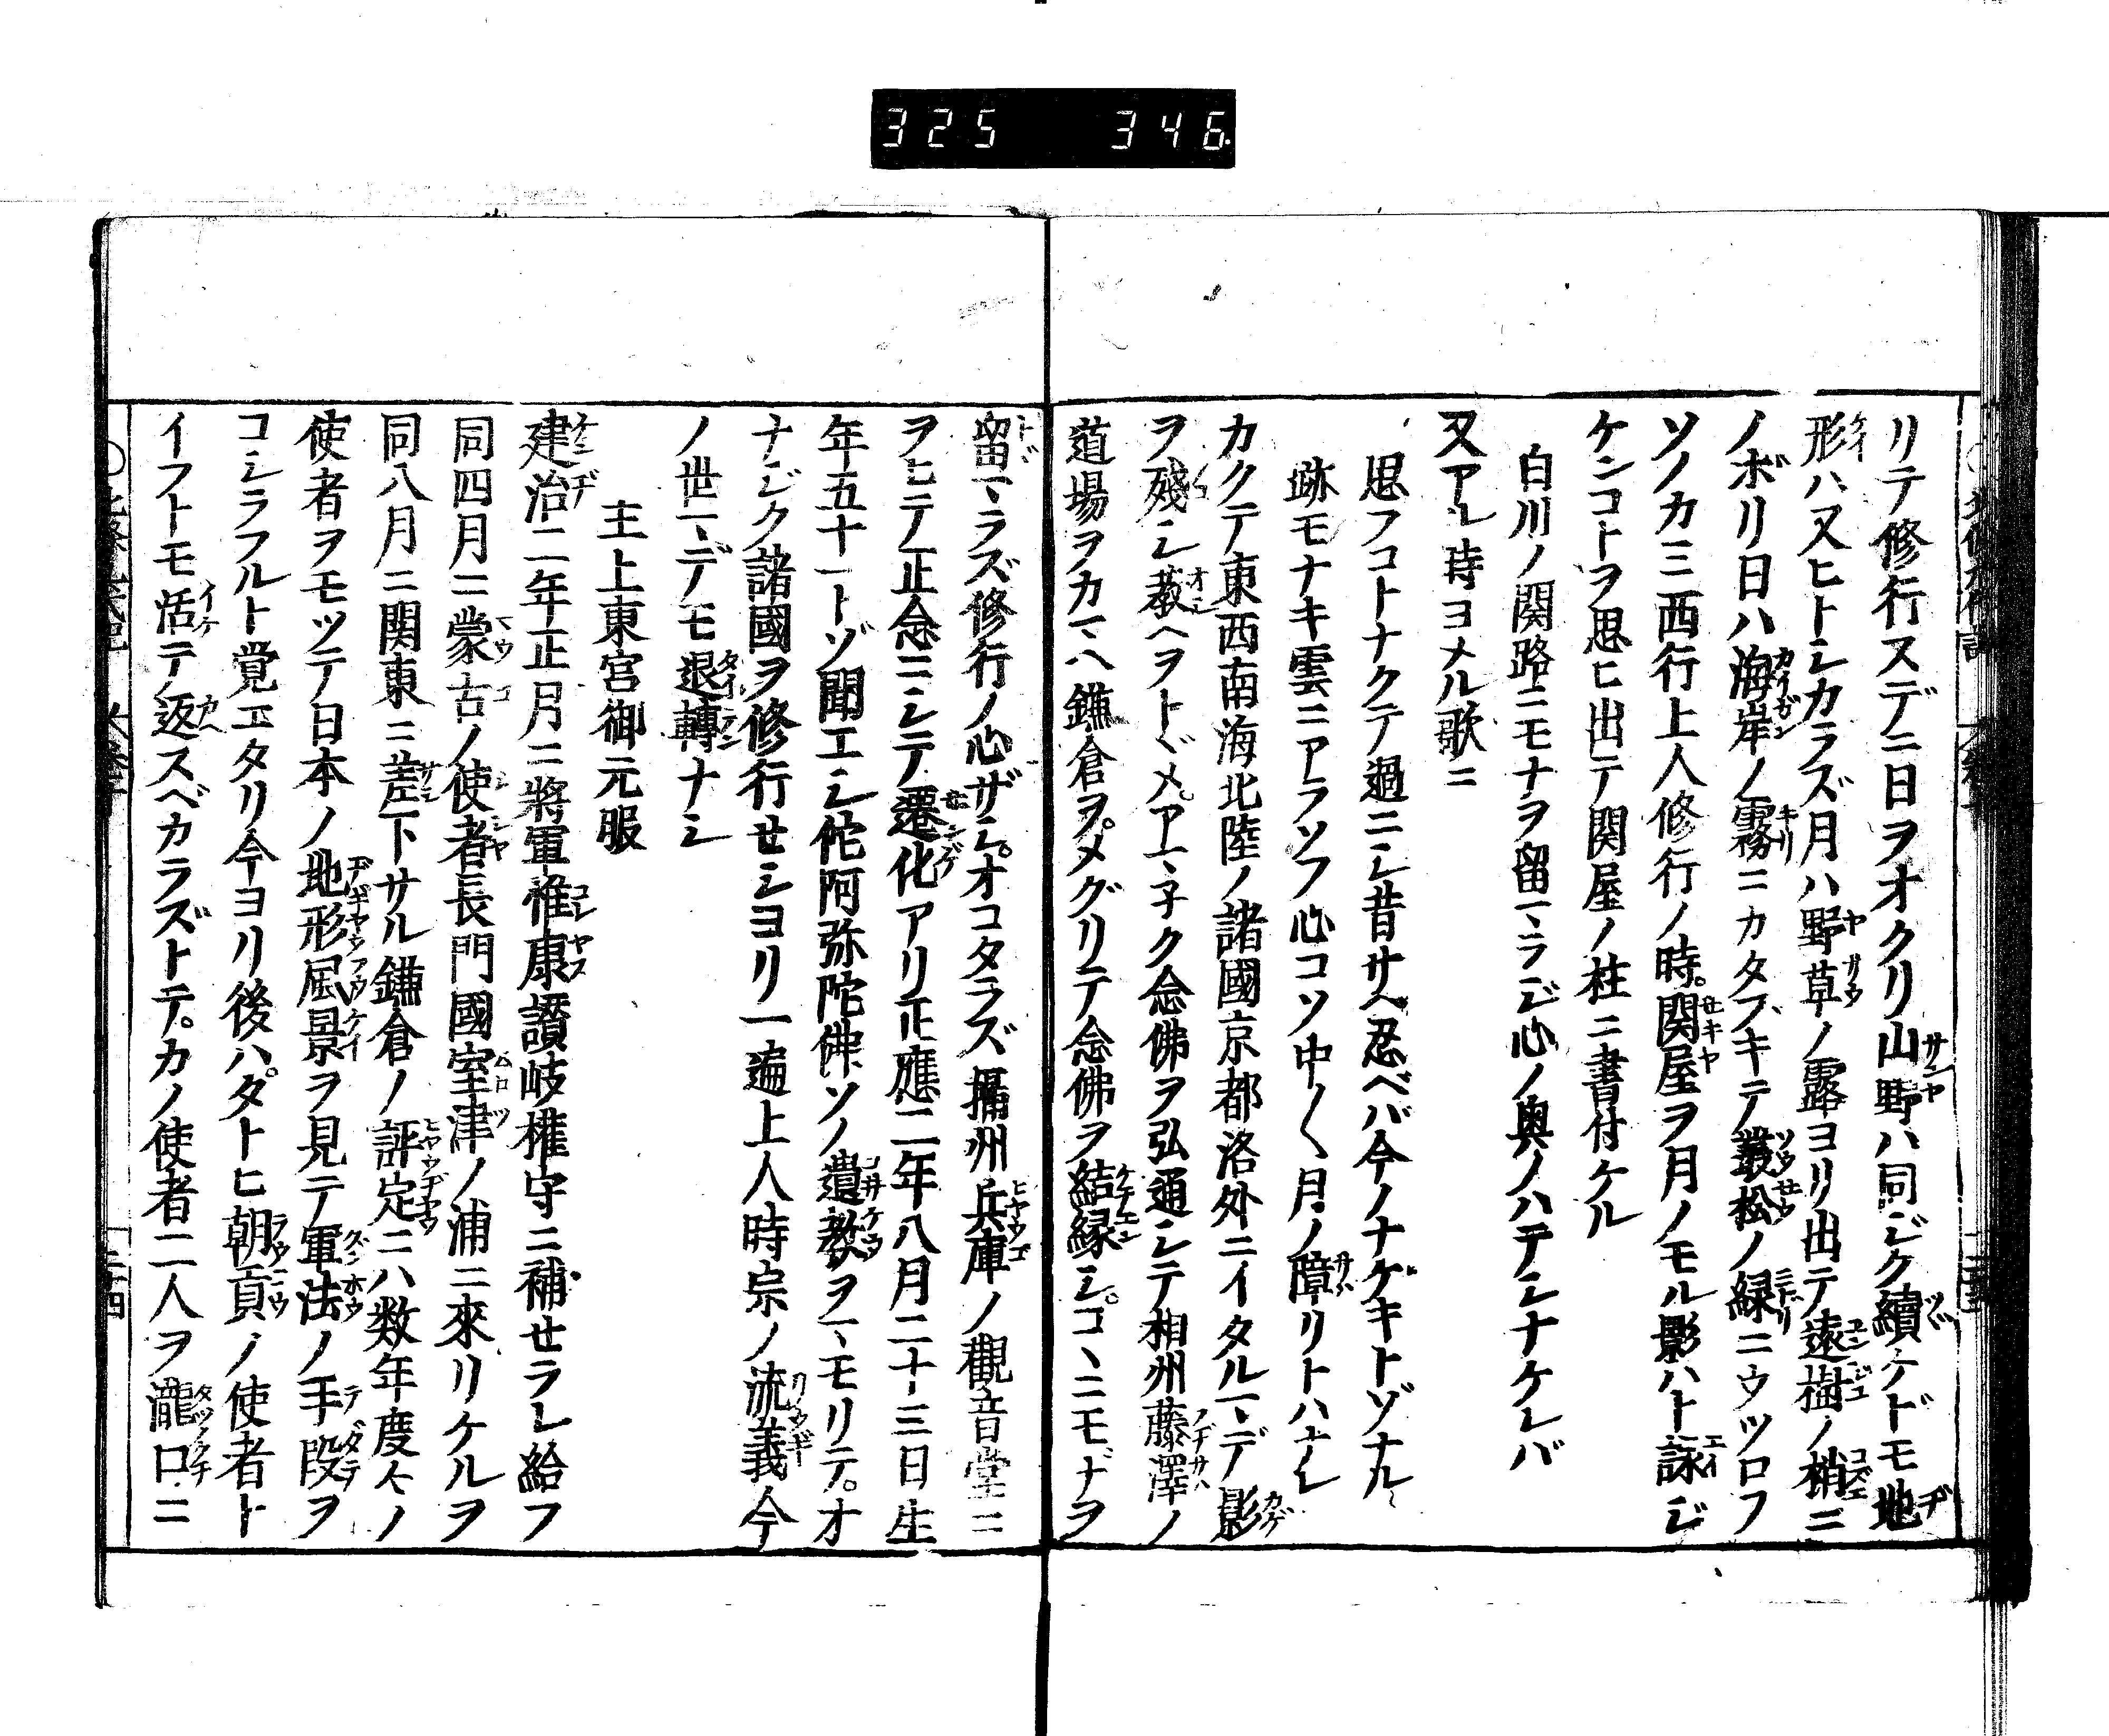 325 346
リテ修行スデニ日ヲオクリ山野ハ同ジク續ケドモ地
形ハ又ヒトシカラズ月ハ野草ノ露ヨリ出テ遠樹ノ梢ニ
ノボリ日ハ海岸ノ霧ニカタブキテ叢松ノ緑ニウツロフ
ソノカミ西行上人修行ノ時。関屋ヲ月ノモル影ハト詠ジ
ケンコトヲ思ヒ出テ関屋ノ柱ニ書付ケル
白川ノ関路ニモナヲ留マラジ心ノ奥ノハテシナケレバ
又アル時ヨメル歌ニ
思フコトナクテ過ニシ昔サヘ忍ベバ今ノナゲキトゾナル
跡モナキ雲ニアラソフ心コソ中〱月ノ障リトハナレ
カクテ東西南海北陸ノ諸國京都洛外ニイタルマデ影
ヲ殘シ教ヘヲトヾメ。アマネク念佛ヲ弘通シテ相州藤澤ノ
道場ヲカマヘ鎌倉ヲ。メグリテ念佛ヲ結縁シ。コヽニモナヲ
留マラズ修行ノ心ザシ。オコタラズ攝州兵庫ノ觀音堂ニ
ヲヒテ正念ニシテ遷化アリ正應二年八月二十三日生
年五十一トゾ聞エシ佗阿弥陀佛ソノ遺教ヲマモリテ。オ
ナジク諸國ヲ修行せシヨリ一遍上人時宗ノ流義今
ノ世マデモ退轉ナシ
主上東宮御元服
建治二年正月ニ將軍惟康讃岐權守ニ補せラレ給フ
同四月ニ蒙古ノ使者長門國室津ノ浦ニ來リケルヲ
同八月ニ関東ニ差下サル鎌倉ノ評定ニハ数年度々ノ
使者ヲモツテ日本ノ地形風景ヲ見テ軍法ノ手段ヲ
コシラフルト覚エタリ今ヨリ後ハ。タトヒ朝貢ノ使者ト
イフトモ活テ返スベカラズトテ。カノ使者二人ヲ瀧口ニ